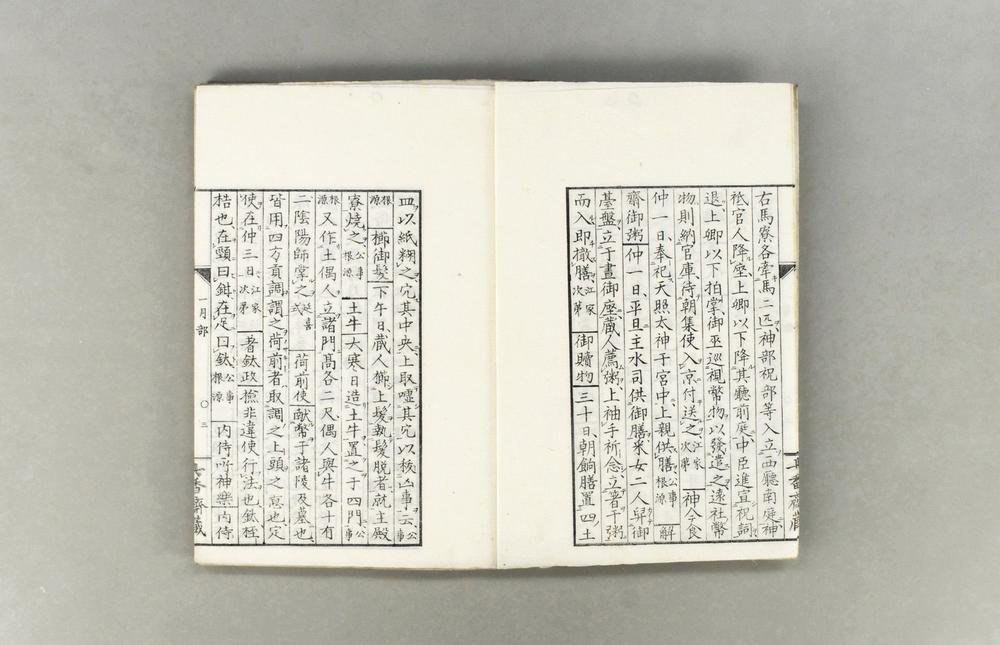 右馬寮各牽馬二匹神部祝部等入立西廳南庭神
祗官人降座上卿以下降其廳前庭中臣進宣祝詞
退上卿以下拍掌御巫巡視幣物以發遣之遠社幣
物則納官庫待朝集使入京付送之江家次第 神今食
仲一日奉祀天照太神于宮中上親供膳公事根源 解
齋御粥 仲一日平旦主水司供御膳釆女二人舁御
臺盤立于晝御座藏人薦粥上袖手祈念立箸于粥
而入即撤膳江家次第 御贖物 三十日朝餉膳置四土
皿以紙糊之穴其中央上取嘘其穴以祓凶事云公事
根源 櫛御髮 下午日藏人櫛上髮執髮脫者就主殿
寮燒之公事根源 土牛 大寒日造土牛置之于四門公事
根源 又作土偶人立諸門髙各二尺偶人與牛各十有
二陰陽師掌之延喜式 荷前使 献幣于諸陵及墓也
皆用四方貢調謂之荷前者取調之上頭之意也定
使在仲三日江家次第 著鈦政 撿非違使行法也鈦桎
梏也在頸曰鉗在足曰鈦公事根源 內侍所神樂 內侍
一月部
〇三